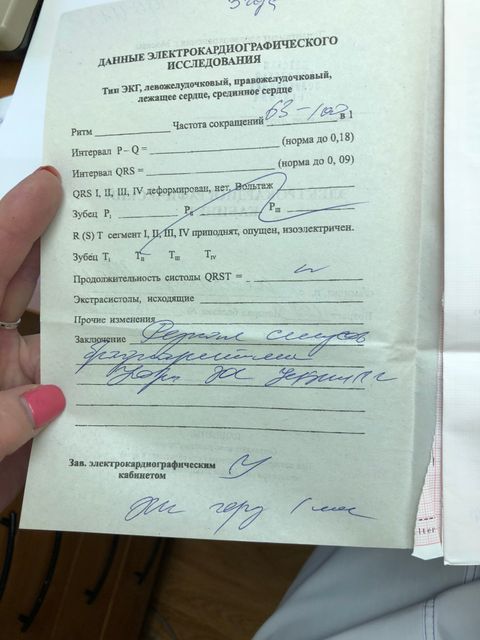 3 года
ДАННЫЕ ЭЛЕКТРОКАРДИОГРАФИЧЕСКОГО
ИССЛЕДОВАНИЯ
Тип ЭКГ, левожелудочковый, правожелудочковый,
лежащее сердце, срединное сердце
Ритм Частота сокращений 63-100 в 1
Интервал P – Q = (норма до 0,18)
Интервал QRS = (норма до 0, 09)
QRS I, II, III, IV деформирован, нет. Вольтаж
Зубец P_I P_II P_III
R (S) T сегмент I, II, III, IV приподнят, опущен, изоэлектричен.
Зубец T_I T_II T_III T_IV
Продолжительность систолы QRST = N
Экстрасистолы, исходящие
Прочие изменения
Заключение синусов
брадиаритмии
Зав. электрокардиографическим
кабинетом
ЭКГ через 1 мес